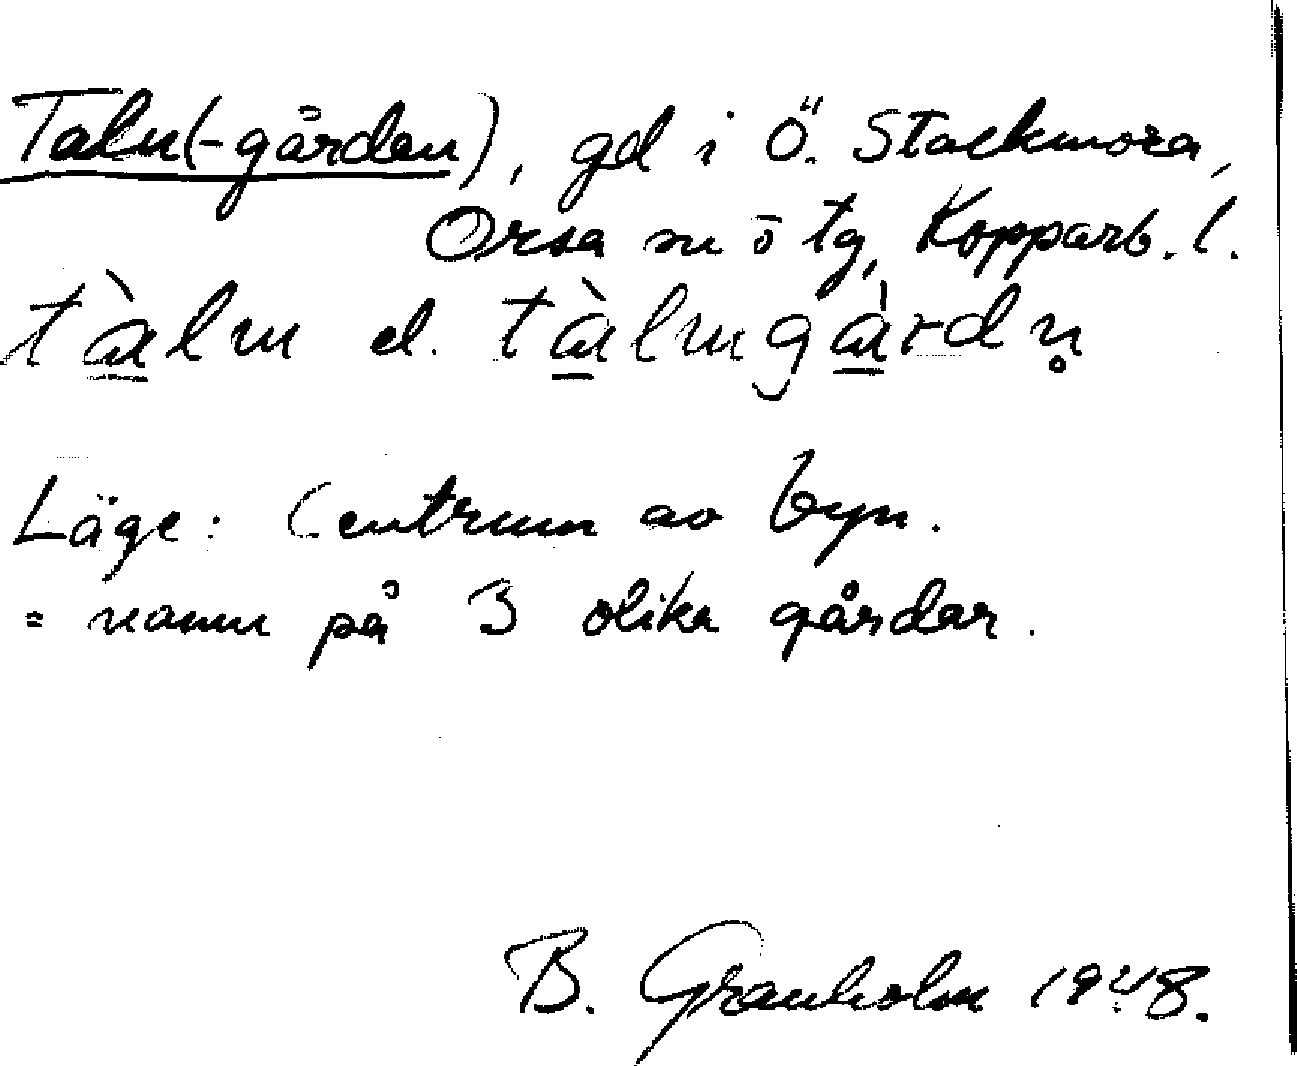 Taln(-gården), gd i Ö. Stackmora,
Orsa sn o tg, Kopparb. l.
tàln el. tàlngàrdn̥
Läge: Centrum av byn.
= namn på 3 olika gårdar.
B. Granholm 1948.